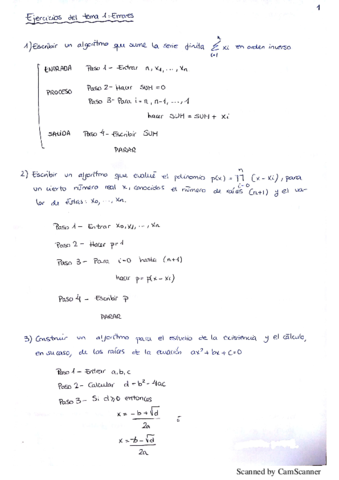 1
Ejercicios del tema 1: Errores
1) Escribir un algoritmo que sume la serie finita Σ xi en orden inverso
n
i=1
ENTRADA Paso 1- Entrar n, x1, ..., xn
PROCESO Paso 2- Hacer SUM=0
Paso 3- Para i=n, n-1, ..., 1
hacer SUM = SUM + xi
SALIDA Paso 4- Escribir SUM
PARAR
2) Escribir un algoritmo que evalúe el polinomio p(x) = ∏ (x-xi), para
n
i=0
un cierto número real x, conocidos el número de raíces (n+1) y el va-
lor de éstas: x0, ..., xn.
Paso 1- Entrar x0, x1, ..., xn
Paso 2- Hacer p=1
Paso 3- Para i=0 hasta (n+1)
hacer p = p(x-xi)
Paso 4- Escribir p
PARAR
3) Construir un algoritmo para el estudio de la existencia y el cálculo,
en su caso, de las raíces de la ecuación ax²+bx+c=0
Paso 1- Entrar a, b, c
Paso 2- Calcular d = b²-4ac
Paso 3- Si d≥0 entonces
x = -b+√d
2a
x = -b-√d
2a
Scanned by CamScanner